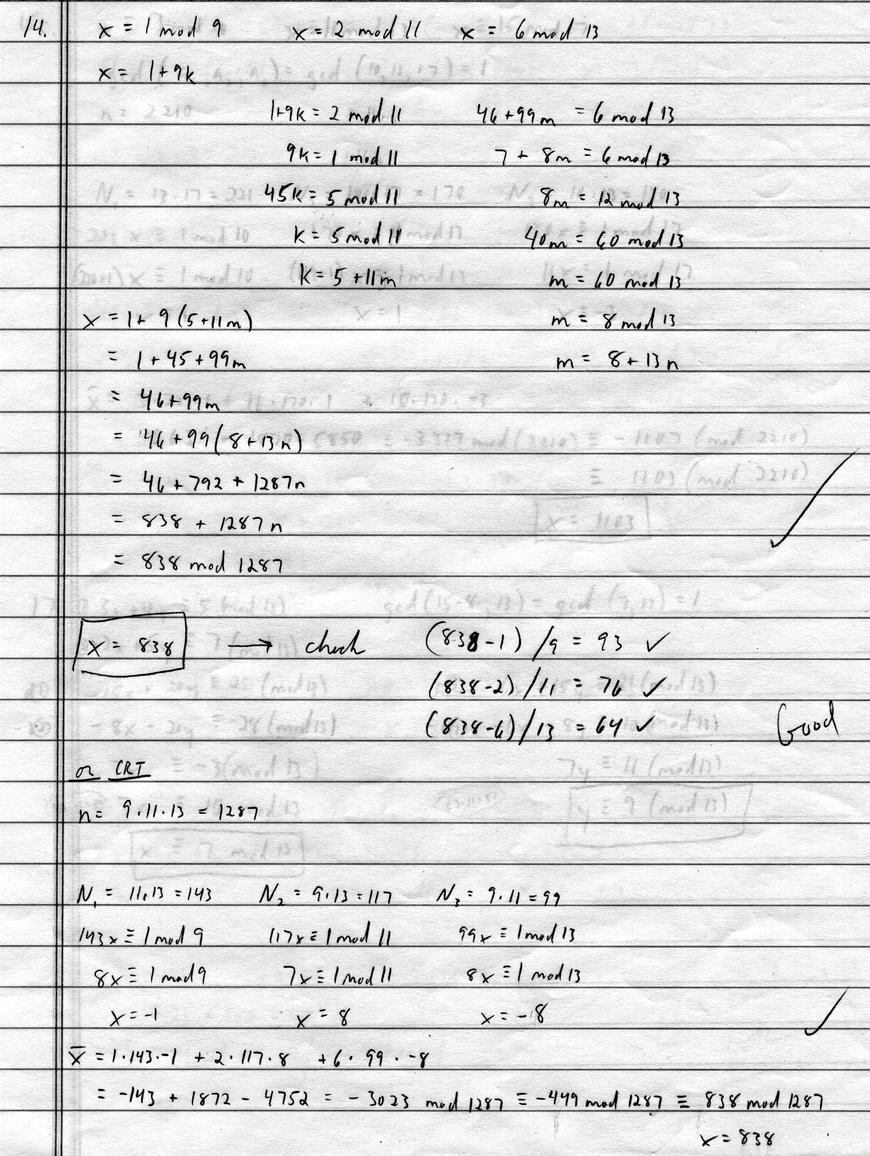 14. x ≡ 1 mod 9 x = 2 mod 11 x = 6 mod 13
x = 1+9k
1+9k = 2 mod 11 46+99m = 6 mod 13
9k = 1 mod 11 7 + 8m = 6 mod 13
45k = 5 mod 11 8m = 12 mod 13
k = 5 mod 11 40m = 60 mod 13
k = 5 + 11m m = 60 mod 13
x = 1 + 9(5+11m) m = 8 mod 13
= 1 + 45 + 99m m = 8 + 13n
= 46+99m
= 46 + 99(8+13n)
= 46 + 792 + 1287n
= 838 + 1287n
= 838 mod 1287
x = 838 → check (838-1)/9 = 93 ✓
(838-2)/11 = 76 ✓
(838-6)/13 = 64 ✓ Good
or CRT
n = 9·11·13 = 1287
N₁ = 11·13 = 143 N₂ = 9·13 = 117 N₃ = 9·11 = 99
143x ≡ 1 mod 9 117x ≡ 1 mod 11 99x ≡ 1 mod 13
8x ≡ 1 mod 9 7x ≡ 1 mod 11 8x ≡ 1 mod 13
x = -1 x = 8 x = -8
x̄ = 1·143·-1 + 2·117·8 + 6·99·-8
= -143 + 1872 - 4752 = -3023 mod 1287 ≡ -449 mod 1287 ≡ 838 mod 1287
x = 838